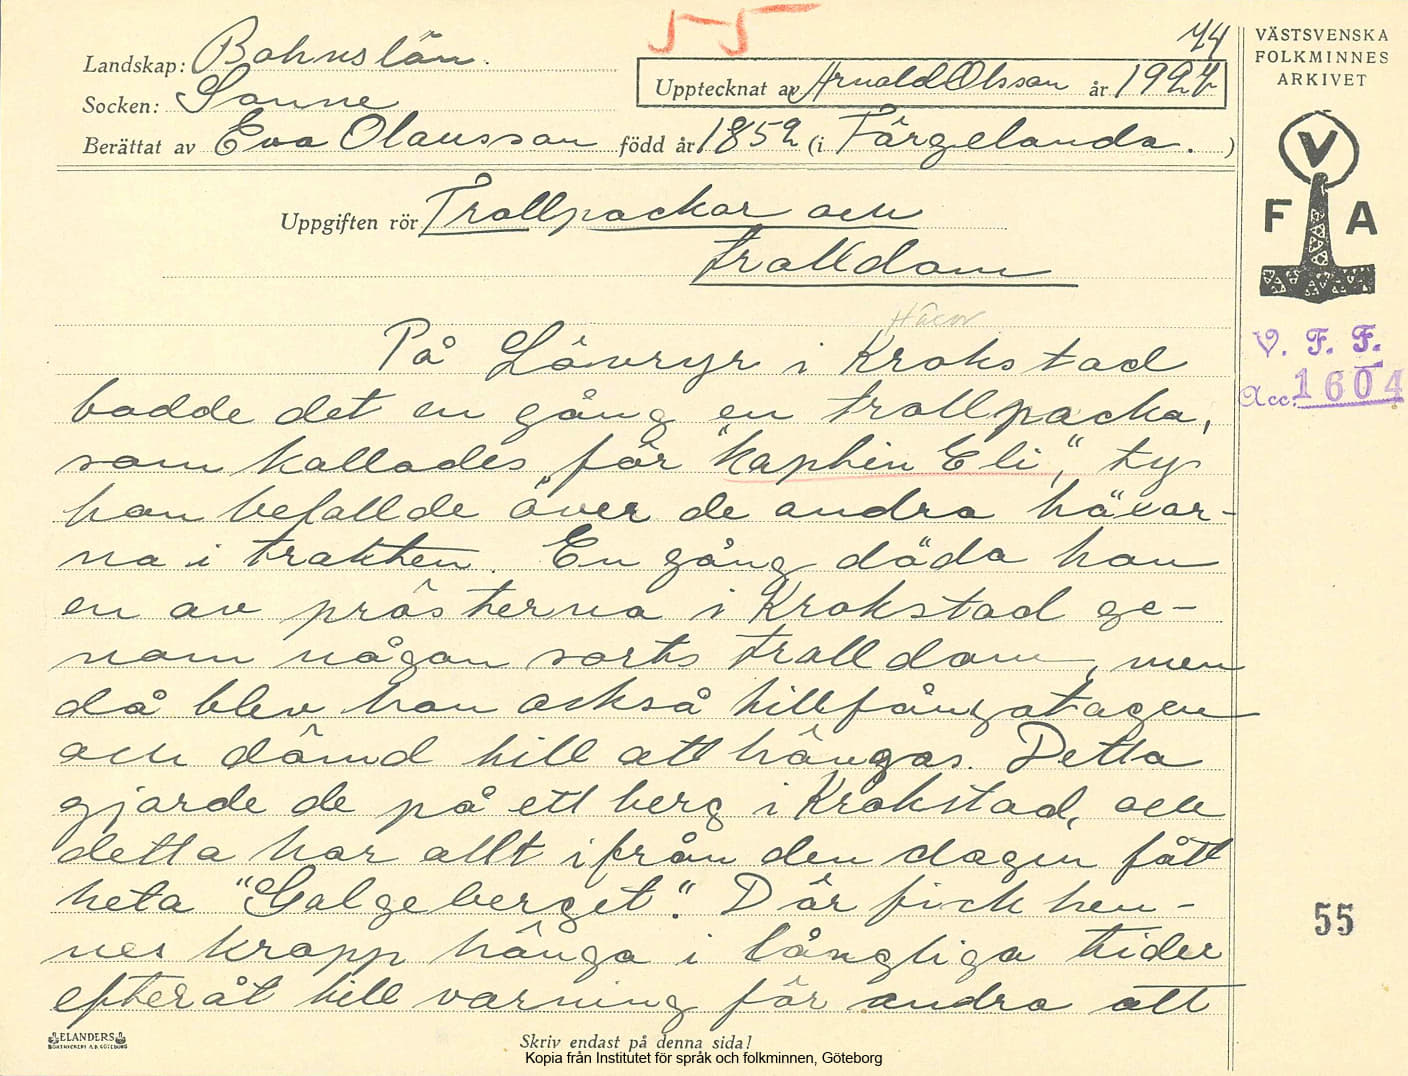 5-5
44
Landskap: Bohuslän.
Socken: Sanne
Upptecknat av Arnold Olsson år 1927
Berättat av Eva Olausson född år 1852 (i Färgelanda.)
VÄSTSVENSKA
FOLKMINNES
ARKIVET
V
F A
Uppgiften rör Trollpackor och
trolldom
Häxor
På Lövryr i Krokstad
bodde det en gång en trollpacka,
som kallades för "kapten Eli", ty
hon befallde över de andra häxar-
na i trakten. En gång döda hon
en av prästerna i Krokstad ge-
nom någon sorts trolldom, men
då blev hon också tillfångatagen
och dömd till att hängas. Detta
gjorde de på ett berg i Krokstad, och
detta har allt ifrån den dagen fått
heta "Galgeberget". Där fick hen-
nes kropp hänga i långliga tider
efteråt till varning för andra att
V. F. F.
Acc. 1604
55
ELANDERS
BOKTRYCKERI A.B. GÖTEBORG
Skriv endast på denna sida!
Kopia från Institutet för språk och folkminnen, Göteborg